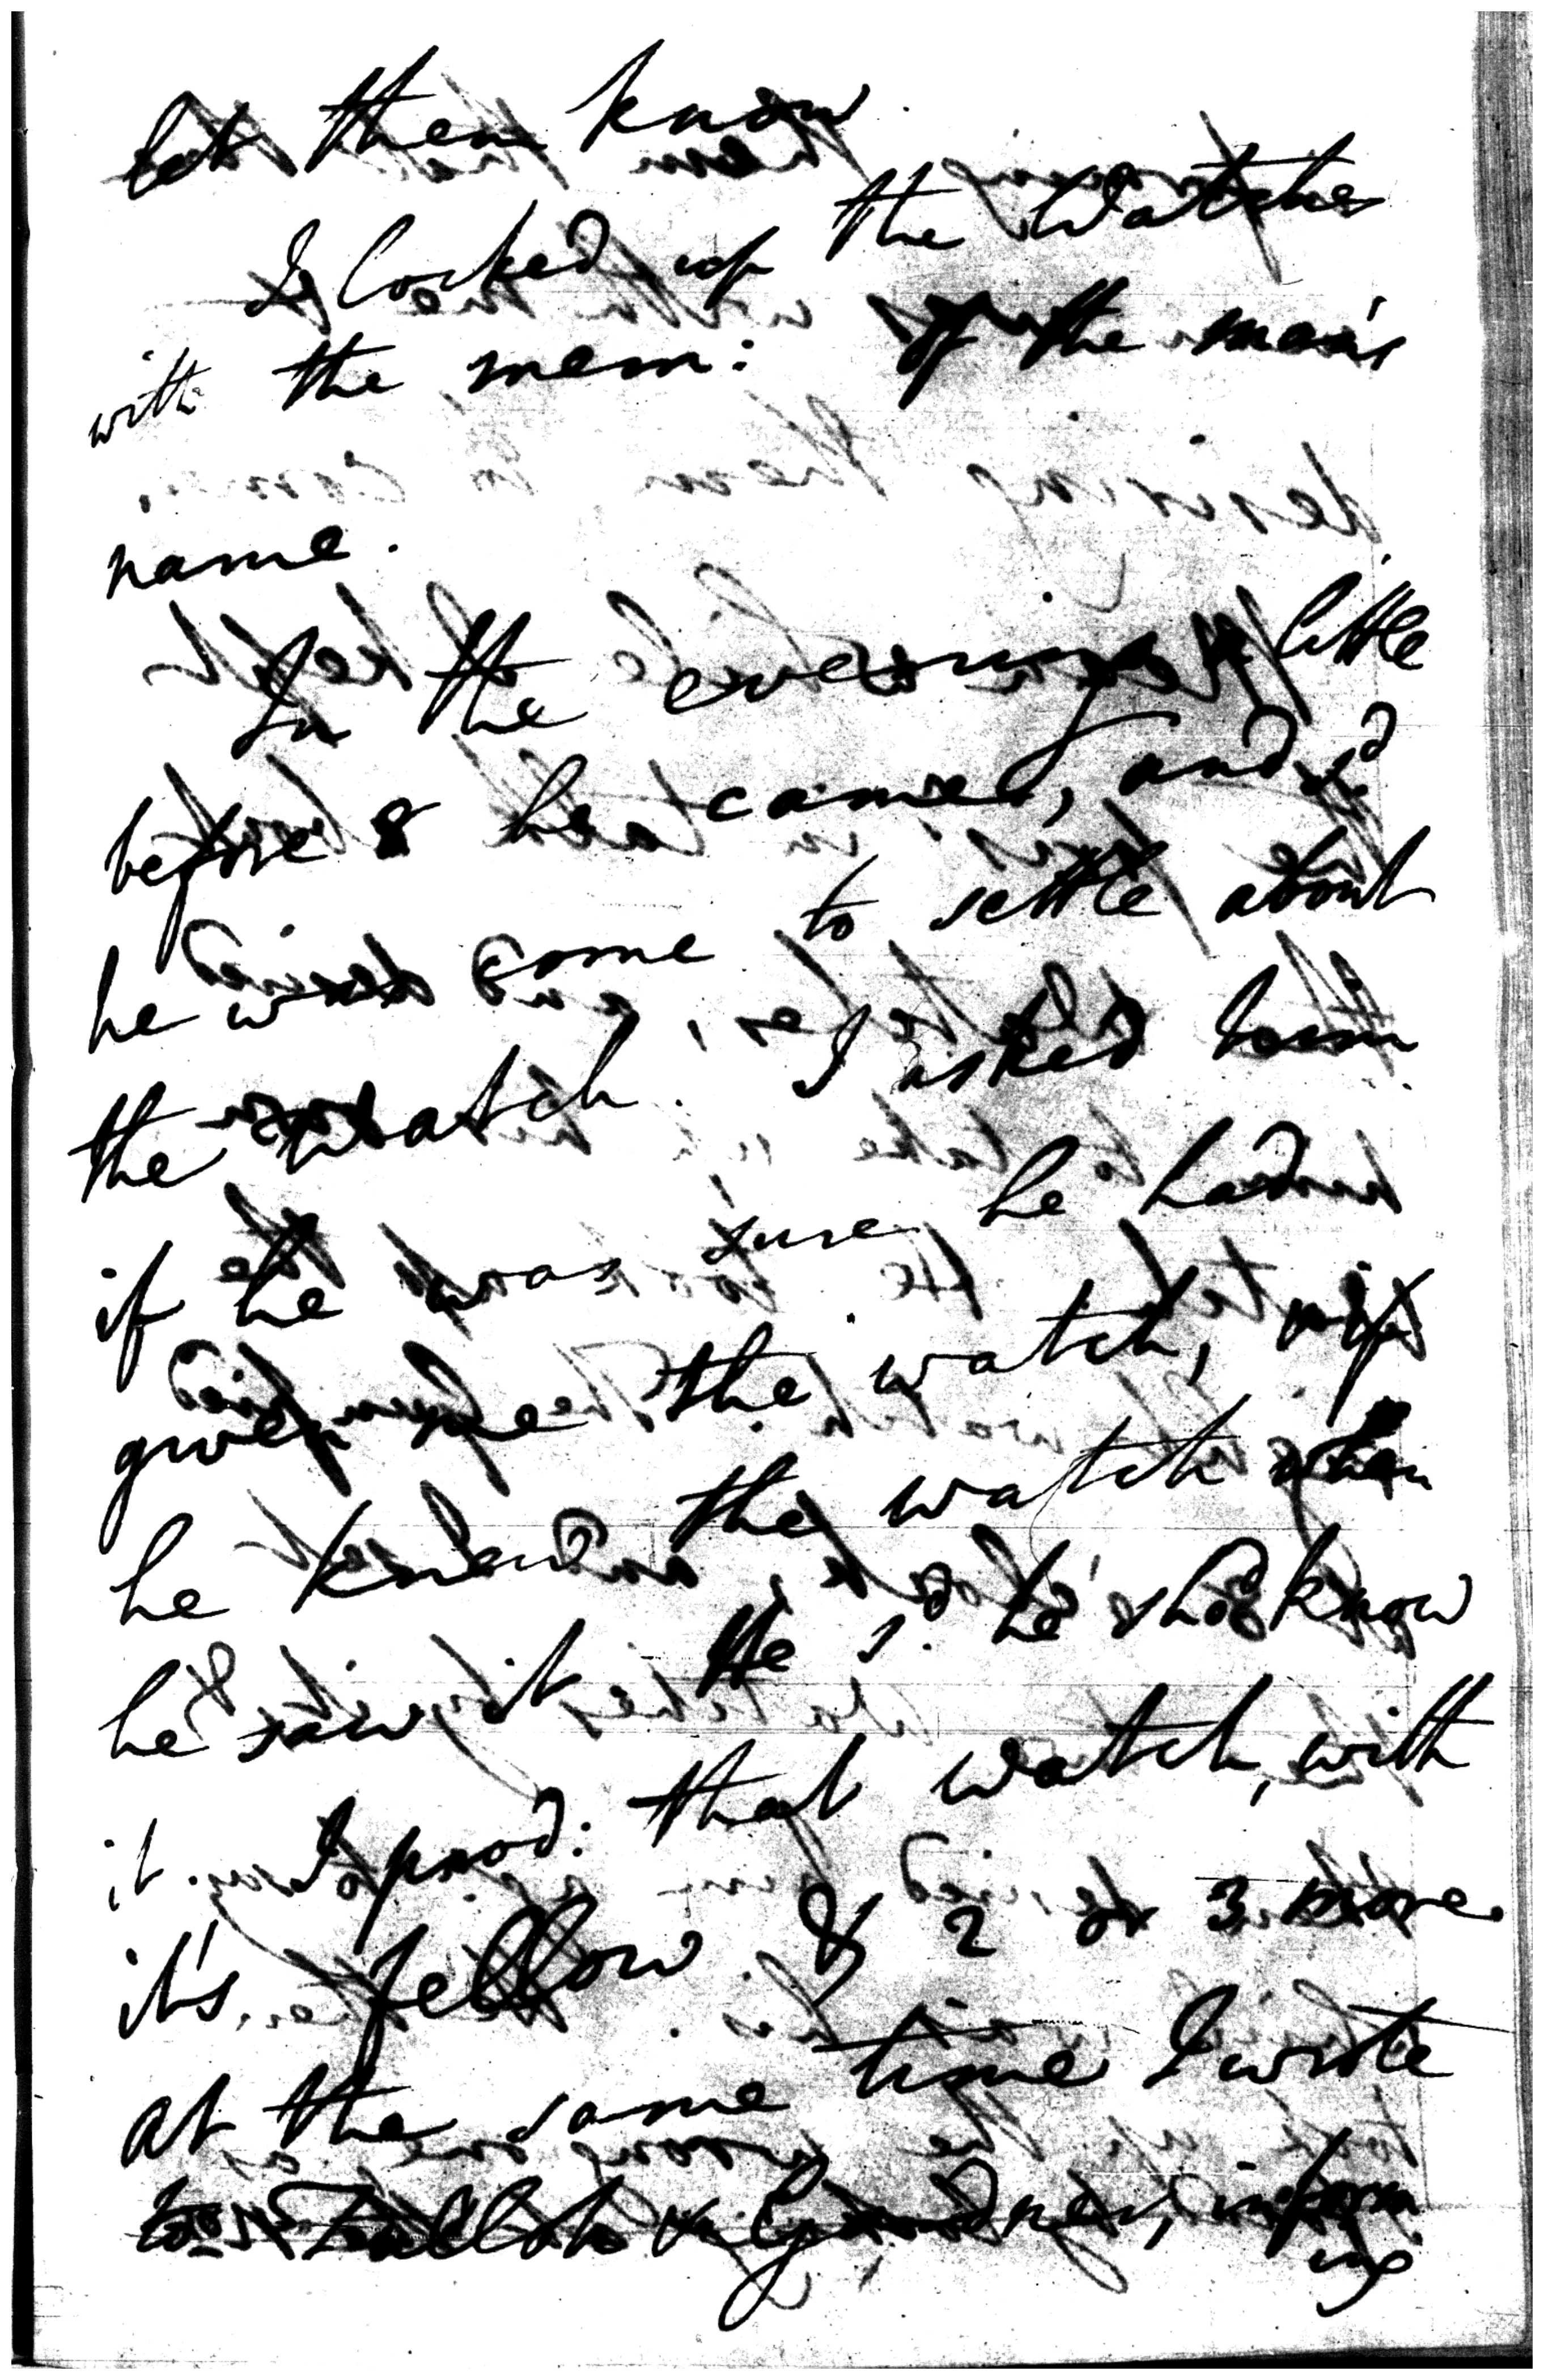 let them know.
I locked up the Watches
with the mem: of the man's
name.
In the evening a little
before 8 he came, and sd
he was come to settle about
the watch. I asked him
if he was sure he hadn
given me the watch, & if
he knew the watch when
he saw it. He sd. he shod know
it. I prod: that watch, with
it's fellow & 2 or 3 more.
at the same time I wrote
to Gardner, inform
ing